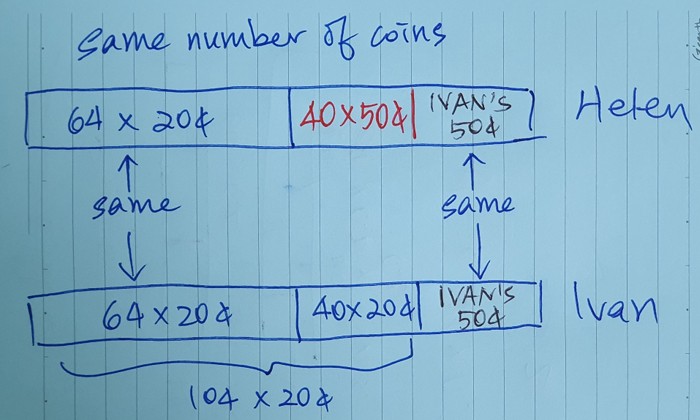 same number of coins
64 x 20¢
40x50¢
IVAN'S
50¢
Helen
same
same
64 x 20¢
40x20¢
IVAN'S
50¢
Ivan
104 x 20¢